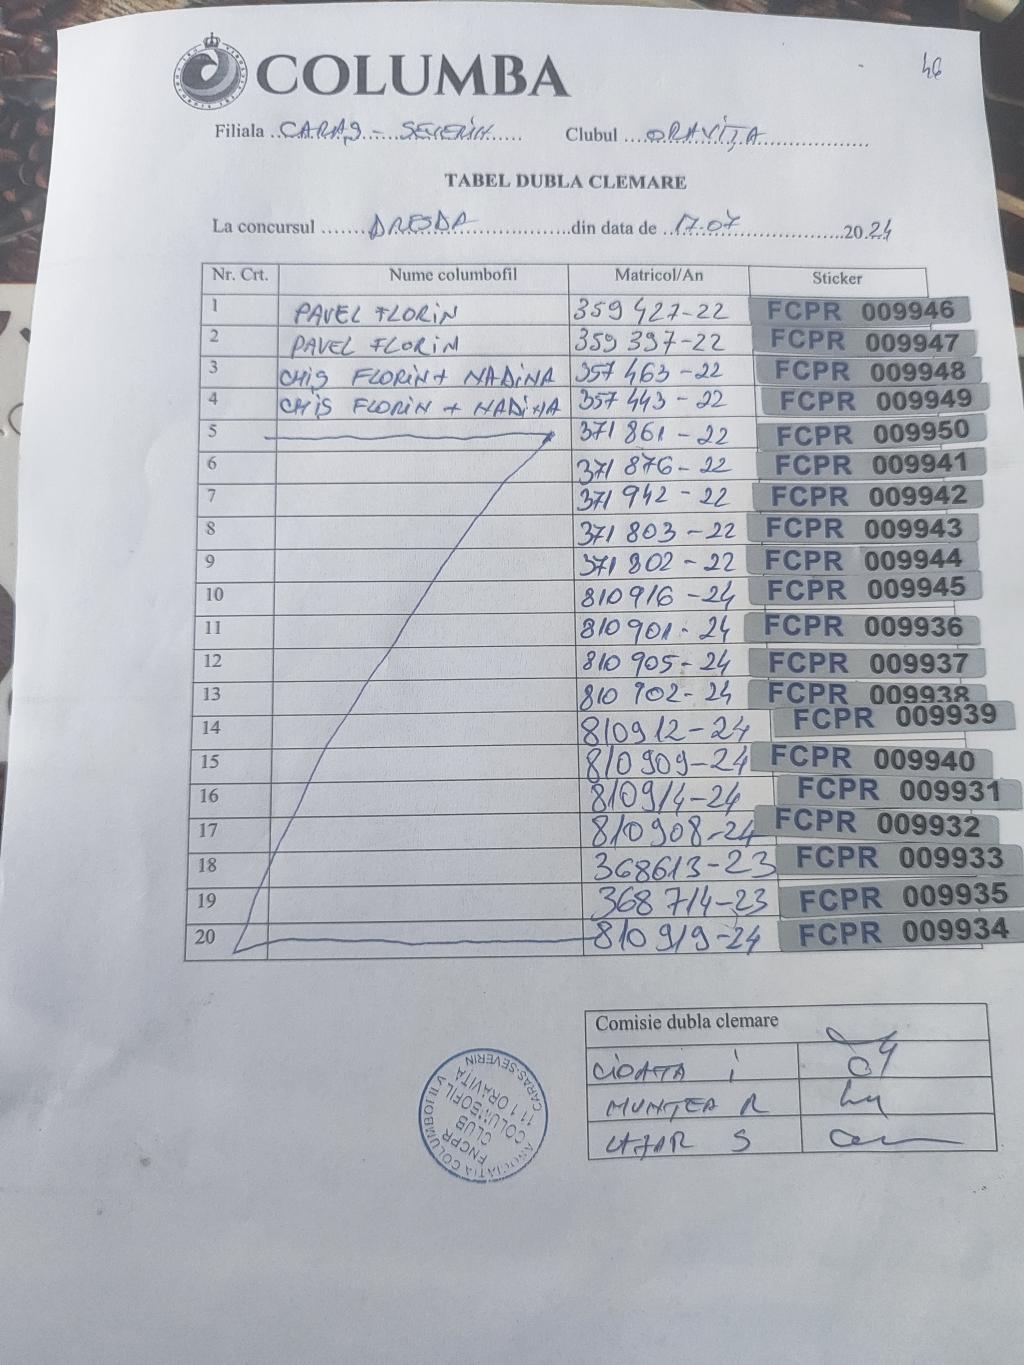 COLUMBA
46
Filiala CARAȘ - SEVERIN Clubul ORAVIȚA
TABEL DUBLA CLEMARE
La concursul DRESDA din data de 17.07 2024
Nr. Crt. Nume columbofil Matricol/An Sticker
1 PAVEL FLORIN 359 427-22 FCPR 009946
2 PAVEL FLORIN 359 397-22 FCPR 009947
3 CHIȘ FLORIN + NADINA 357 463-22 FCPR 009948
4 CHIȘ FLORIN + NADINA 357 443-22 FCPR 009949
5 371 861-22 FCPR 009950
6 371 876-22 FCPR 009941
7 371 942-22 FCPR 009942
8 371 803-22 FCPR 009943
9 371 802-22 FCPR 009944
10 810 916-24 FCPR 009945
11 810 901-24 FCPR 009936
12 810 905-24 FCPR 009937
13 810 902-24 FCPR 009938
14 810912-24 FCPR 009939
15 810909-24 FCPR 009940
16 810914-24 FCPR 009931
17 810908-24 FCPR 009932
18 368613-23 FCPR 009933
19 368 714-23 FCPR 009935
20 810 919-24 FCPR 009934
Comisie dubla clemare
CIOATA I
MUNTEA R
LAZAR S
ASOCIAȚIA COLUMBOFILĂ
CARAȘ-SEVERIN
FNCPR
CLUB
COLUMBOFIL
111 ORAVIȚA